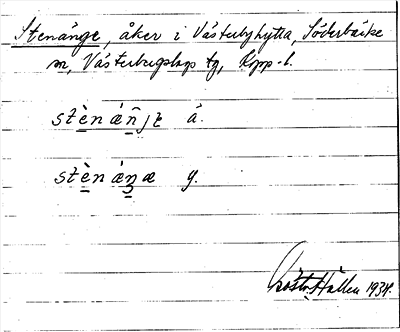 Stenänge, åker i Västerbyhytta, Söderbärke
sn, Västerbergslags tg, Kopp. l.
stènáñjɛ ä.
stènánæ y.
Gösta Hallen 1934.